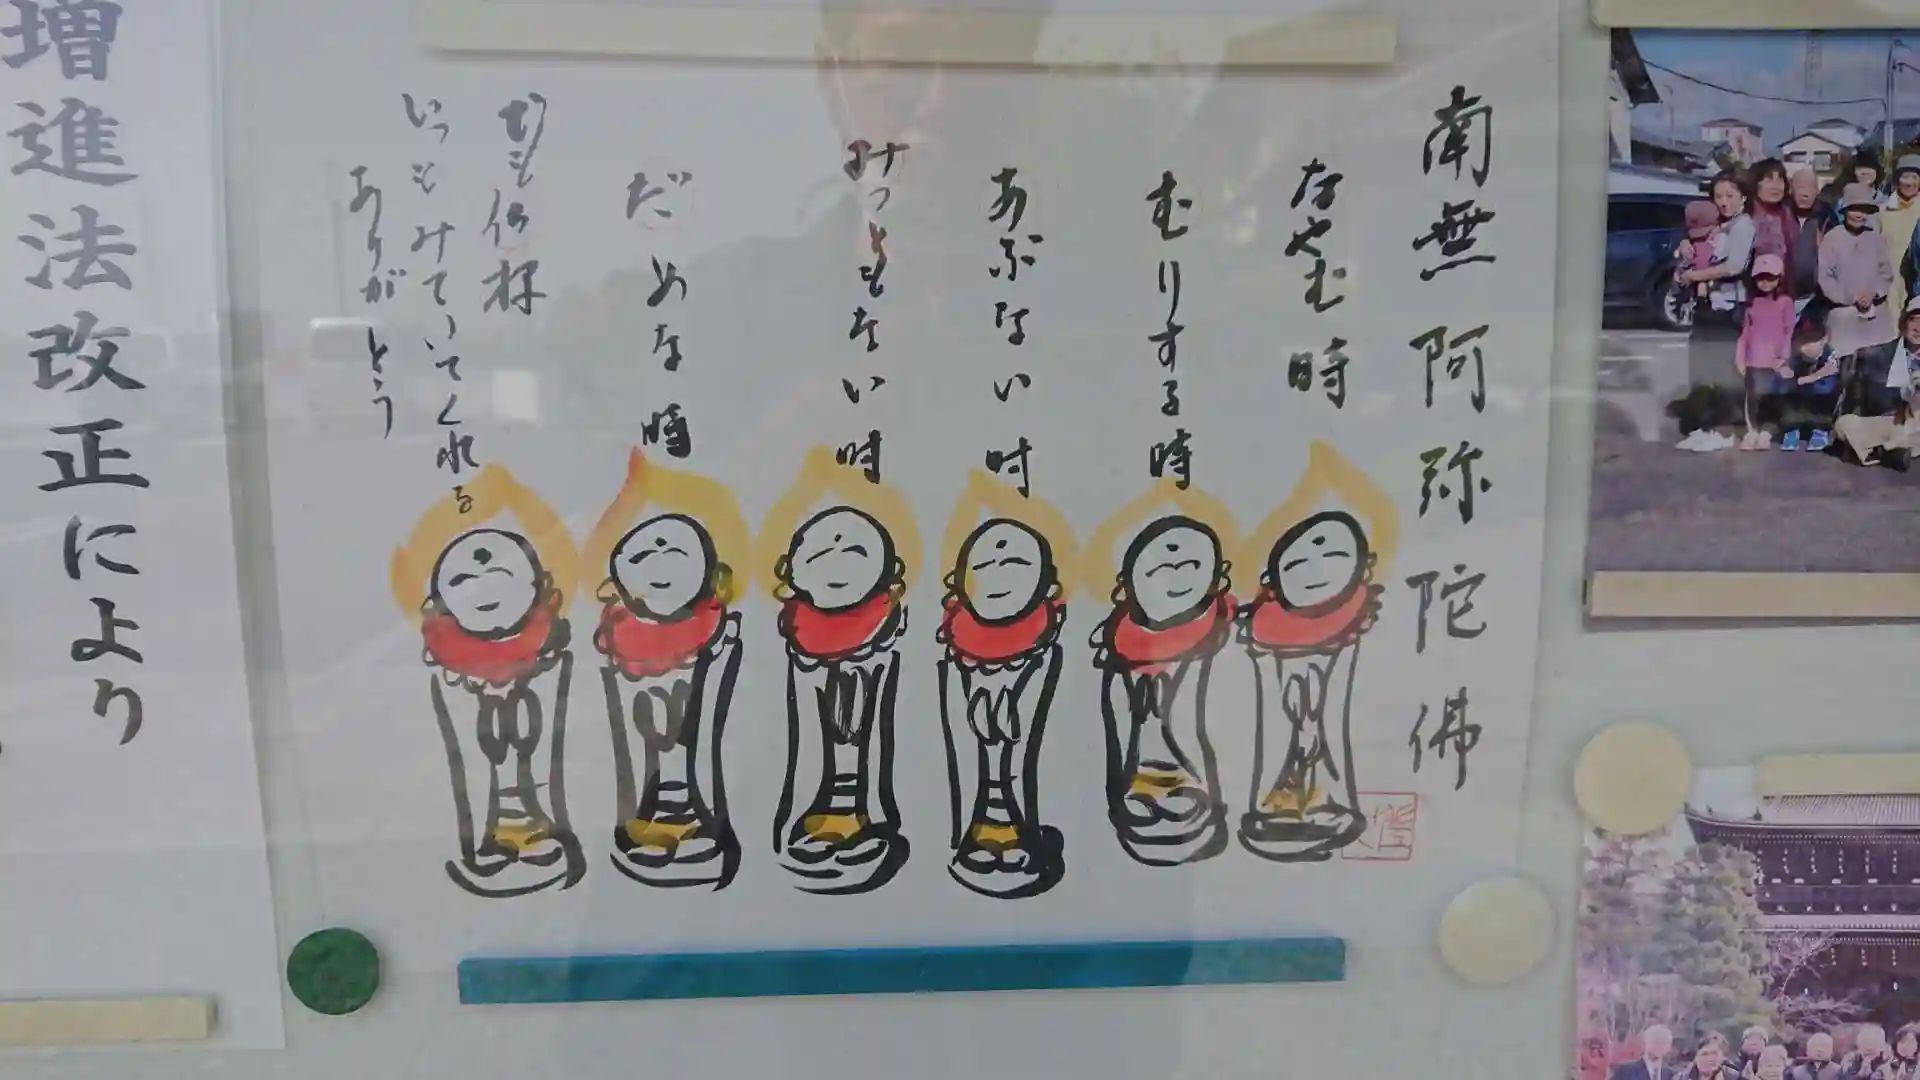 南無阿弥陀佛
なやむ時
むりする時
あぶない時
みっともない時
だめな時
でも仏様
いつもみていてくれる
ありがとう
増進法改正により